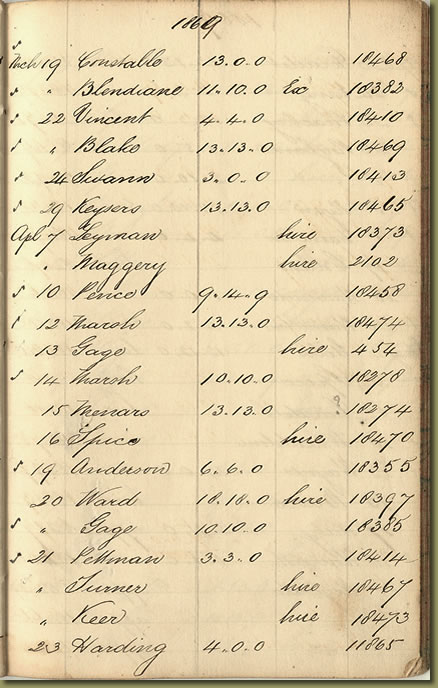 1869
Mch 19 Constable 13.0.0 18468
" Blendiane 11.10.0 Ex 18382
22 Vincent 4.4.0 18410
" Blake 13.13.0 18469
24 Swann 3.0.0 18413
29 Keysers 13.13.0 18465
Apl 7 Leyman hire 18373
" Maggery hire 2102
10 Pence 9.14.9 18458
12 Marsh 13.13.0 18474
13 Gage hire 454
14 Marsh 10.10.0 18278
15 Menars 13.13.0 ? 18274
16 Spice hire 18470
19 Anderson 6.6.0 18355
20 Ward 18.18.0 hire 18397
" Gage 10.10.0 18385
21 Pettman 3.3.0 18414
" Turner hire 18467
" Keer hire 18473
23 Harding 4.0.0 11865